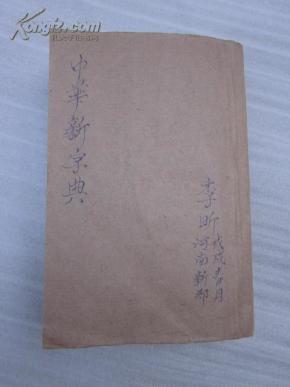 中華新字典
李昕
戊戌春月
河南新郑
KongfZ.com